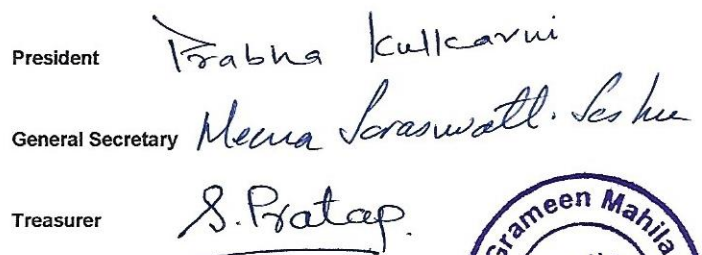 President Prabha Kulkarni
General Secretary Meena Saraswathi. Seshu
Treasurer S. Pratap.
Grameen Mahila